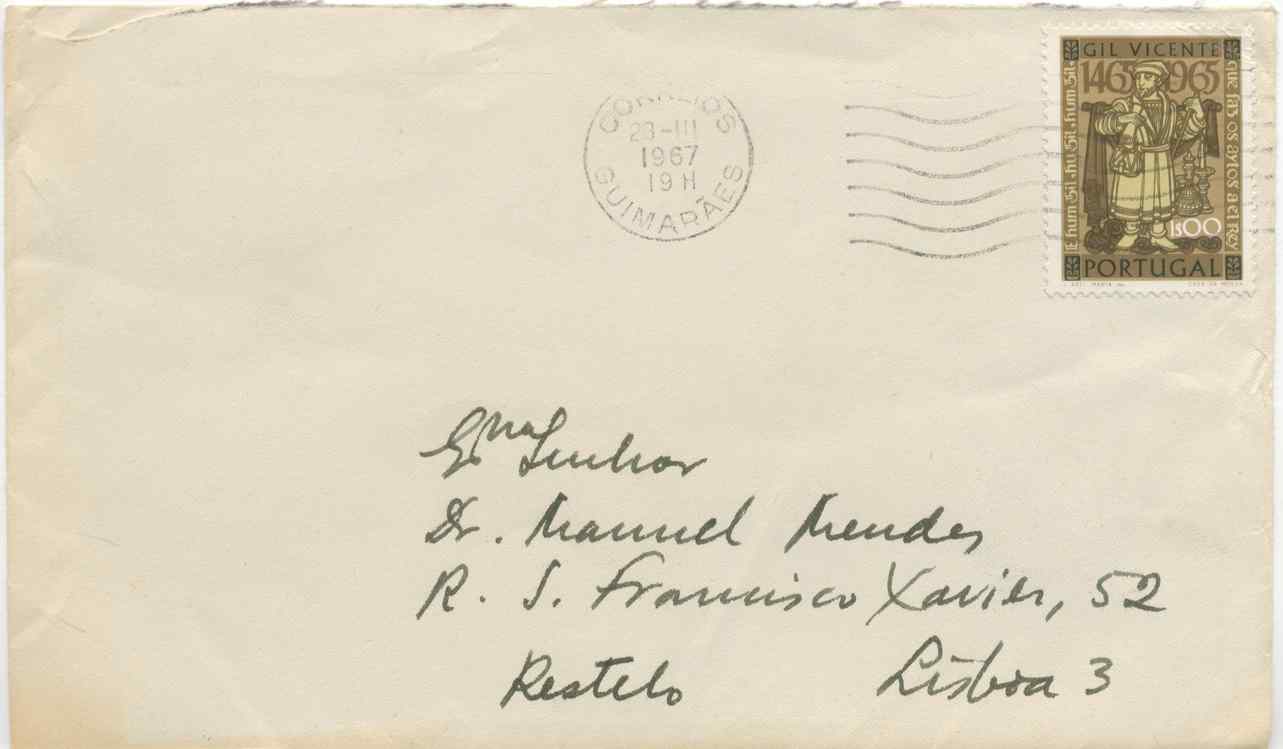 CORREIOS
23-III
1967
19 H
GUIMARÃES
GIL VICENTE
1465 1965
E hum Gil · hu Gil · hum Gil ·
que faz os aytos a el Rey
1$00
PORTUGAL
CASA DA MOEDA
Exmo Senhor
Dr. Manuel Mendes
R. S. Francisco Xavier, 52
Restelo Lisboa 3